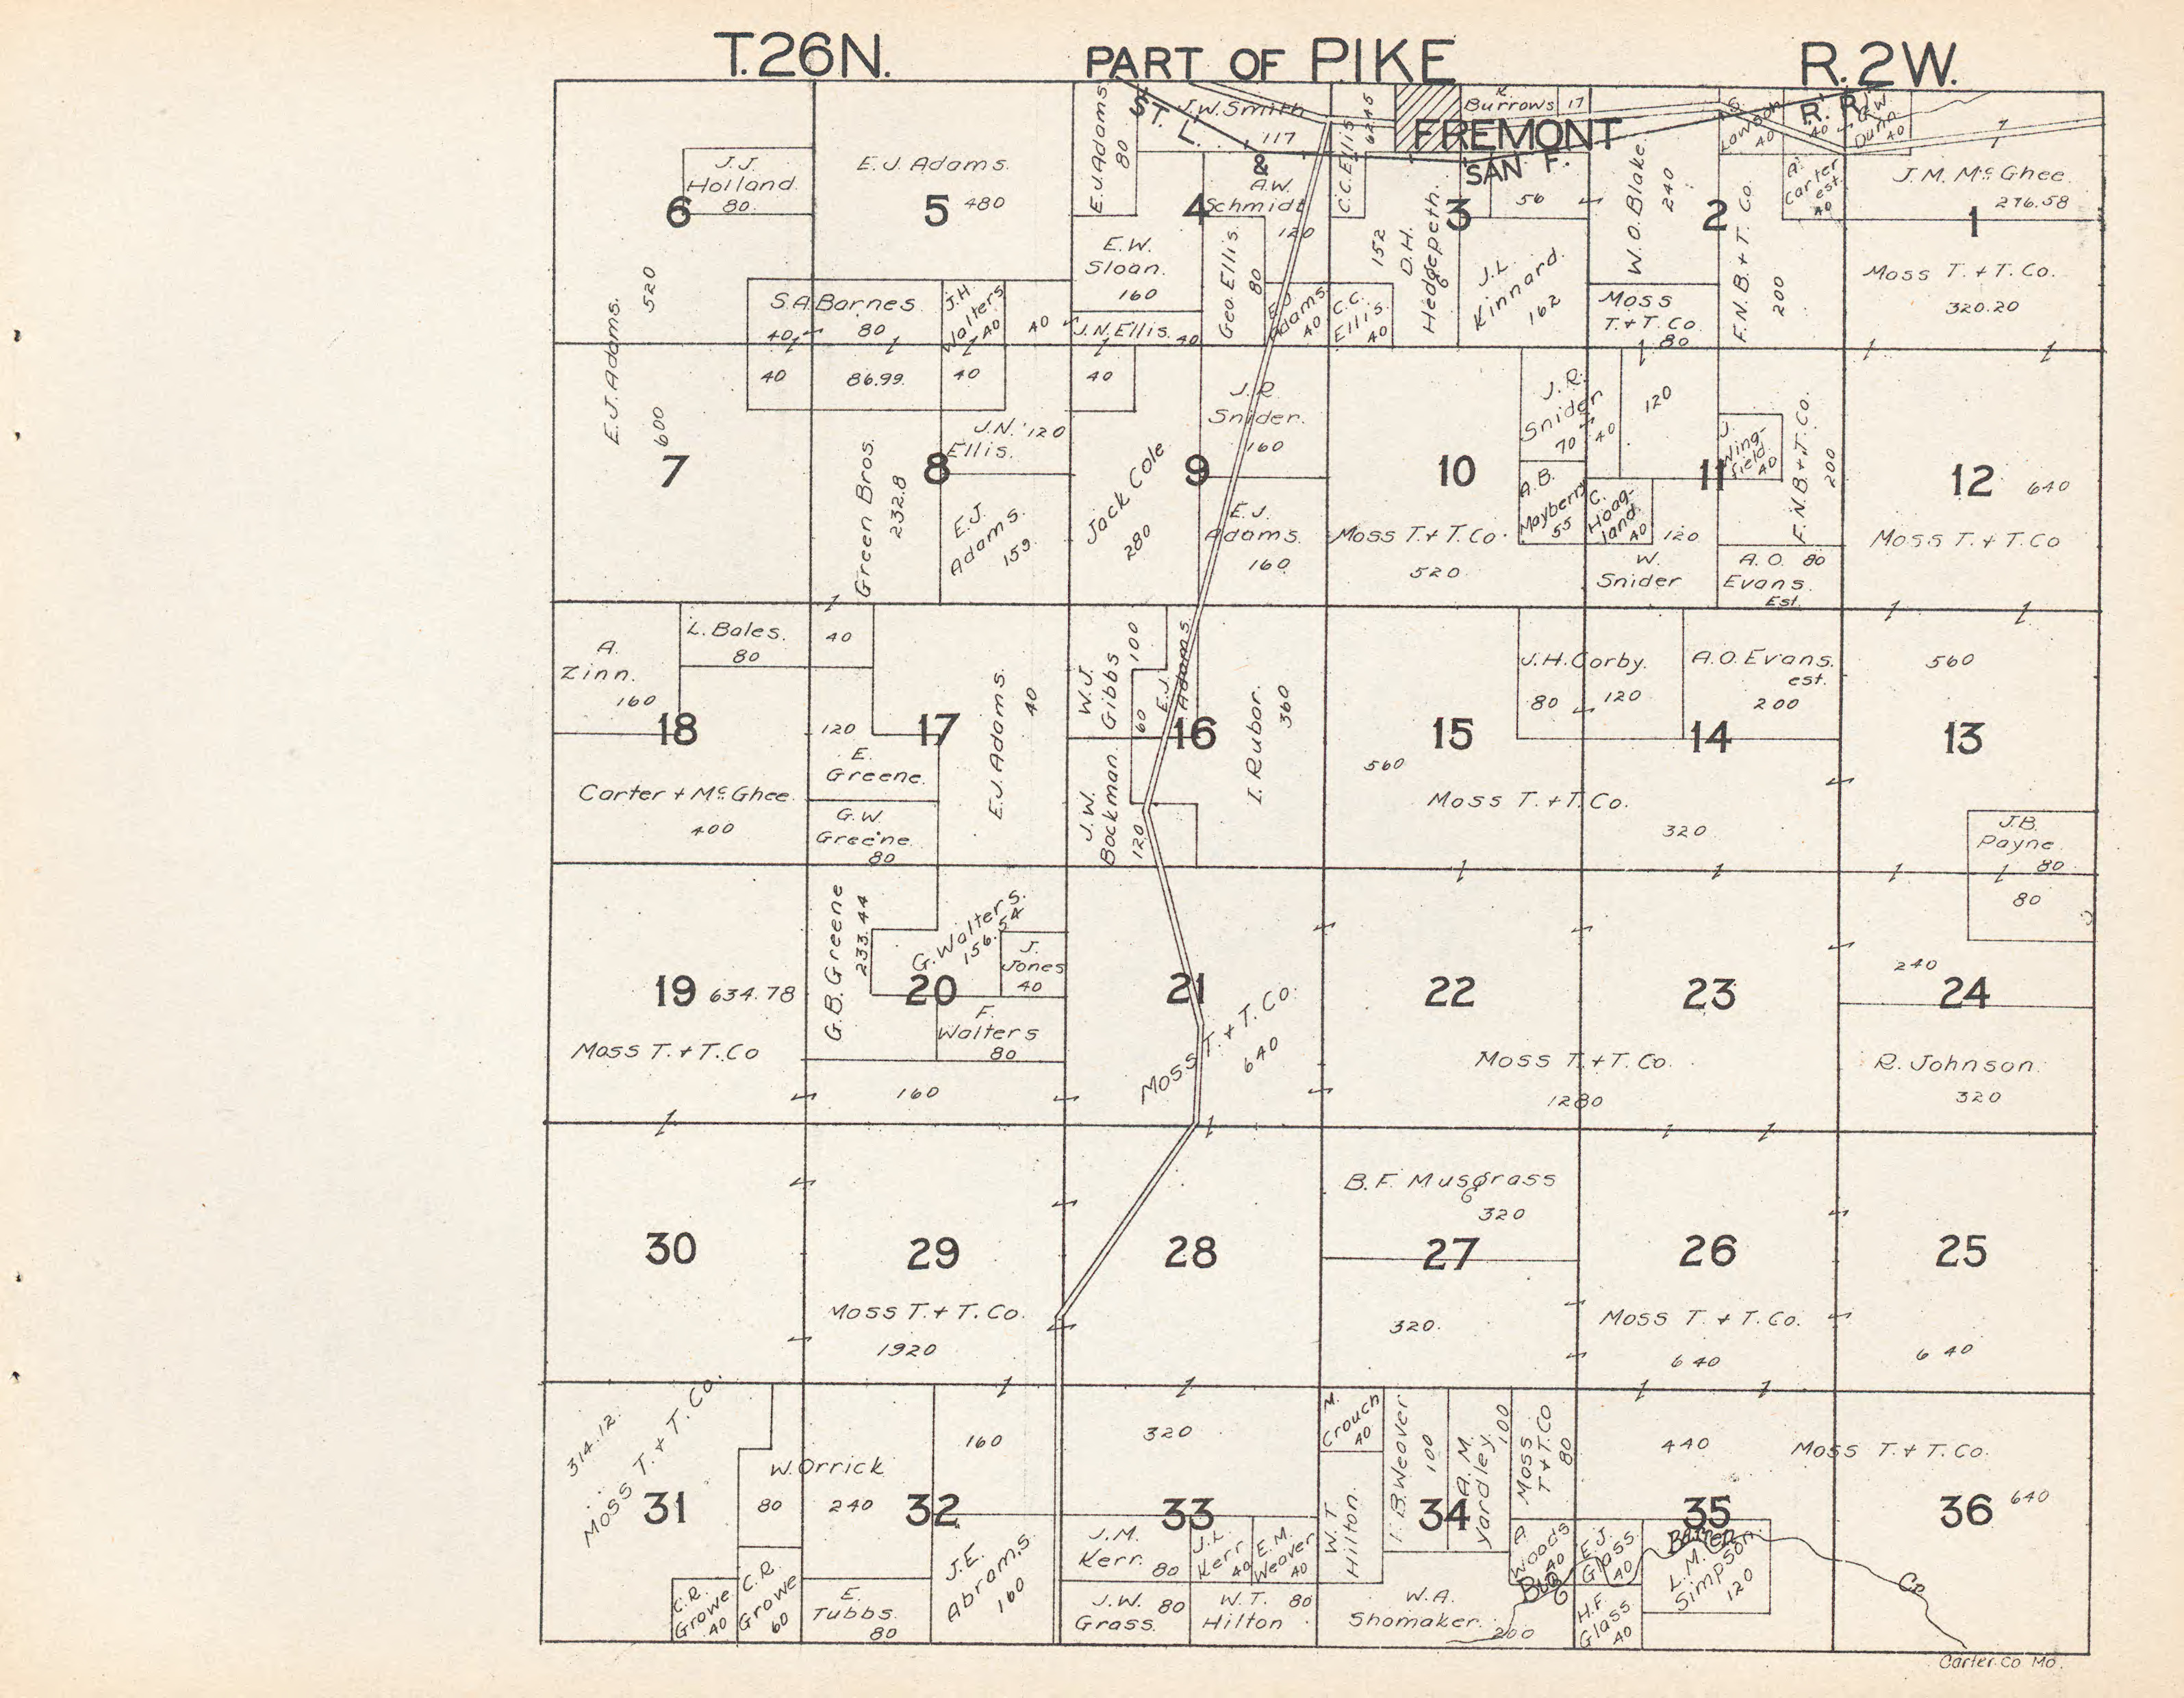 T.26N. PART OF PIKE R.2W.
ST. L. & SAN F. R.R.
FREMONT
6
J.J.
Holland.
80.
E.J. Adams.
520
5
E.J. Adams.
480
S.A. Barnes
40
80
J.H.
Walters
40
40
E.J. Adams
80
J.W. Smith
117
4
A.W.
Schmidt
120
E.W.
Sloan.
160
Geo. Ellis.
80
J.N. Ellis.
40
E.J.
Adams
40
C.C. Ellis
62.45
C.C.
Ellis.
40
K.
Burrows 17
3
56
152
D.H.
Hedgepeth.
J.L.
Kinnard.
162
W.O. Blake.
240
2
Moss
T. + T. Co.
80
F.N.B. + T. Co.
200
S.
Lawson
40
40
G.W.
Dunn
40
A.
Carter
est.
40
J.M. McGhee.
276.58
1
Moss T. + T. Co.
320.20
7
600
40
86.99.
40
8
J.N. 120
Ellis.
Green Bros.
232.8
E.J.
Adams.
159
40
9
Jack Cole
280
J.R.
Snider.
160
E.J.
Adams.
160
10
Moss T. + T. Co.
520
J.R.
Snider
70
40
A.B.
Mayberry
55
120
11
J.
Wing-
field
40
F.N.B. + T. Co.
200
C.
Hoag-
land.
40
120
W.
Snider
A.O. 80
Evans.
Est.
12
640
Moss T. + T. Co
A.
Zinn.
160
L. Bales.
80
18
Carter + McGhee.
400
40
120
17
E.
Greene.
G.W.
Greene.
80
E.J. Adams.
40
W.J.
Gibbs
100
60
E.J.
Adams.
16
J.W.
Bockman
120
I. Rubar.
360
15
560
J.H. Corby.
80
120
A.O. Evans.
est.
200
14
Moss T. + T. Co.
320
560
13
J.B.
Payne.
80
19 634.78
Moss T. + T. Co
G.B. Greene
233.44
G. Walters.
156.54
J.
Jones
40
20
F.
Walters
80
160
21
Moss T. + T. Co.
640
22
23
Moss T. + T. Co.
1280
80
240
24
R. Johnson.
320
30
29
Moss T. + T. Co.
1920
28
B.F. Musgrass
320
27
320.
26
Moss T. + T. Co.
640
25
640
314.12.
Moss T. + T. Co.
31
W. Orrick
80
240
32
160
C.R.
Growe
40
C.R.
Growe
60
E.
Tubbs.
80
J.E.
Abrams
160
320
33
J.M.
Kerr.
80
J.L.
Kerr
40
E.M.
Weaver
40
J.W. 80
Grass.
W.T. 80
Hilton
M.
Crouch
40
W.T.
Hilton.
T.B. Weaver
100
34
A.M.
Yardley.
100
Moss
T + T. Co
80
A.
Woods
40
W.A.
Shomaker.
200
440
35
E.J.
Glass.
40
H.F.
Glass
40
L.M.
Simpson.
120
Big Barren Cr.
Moss T. + T. Co.
36 640
Carter Co Mo.